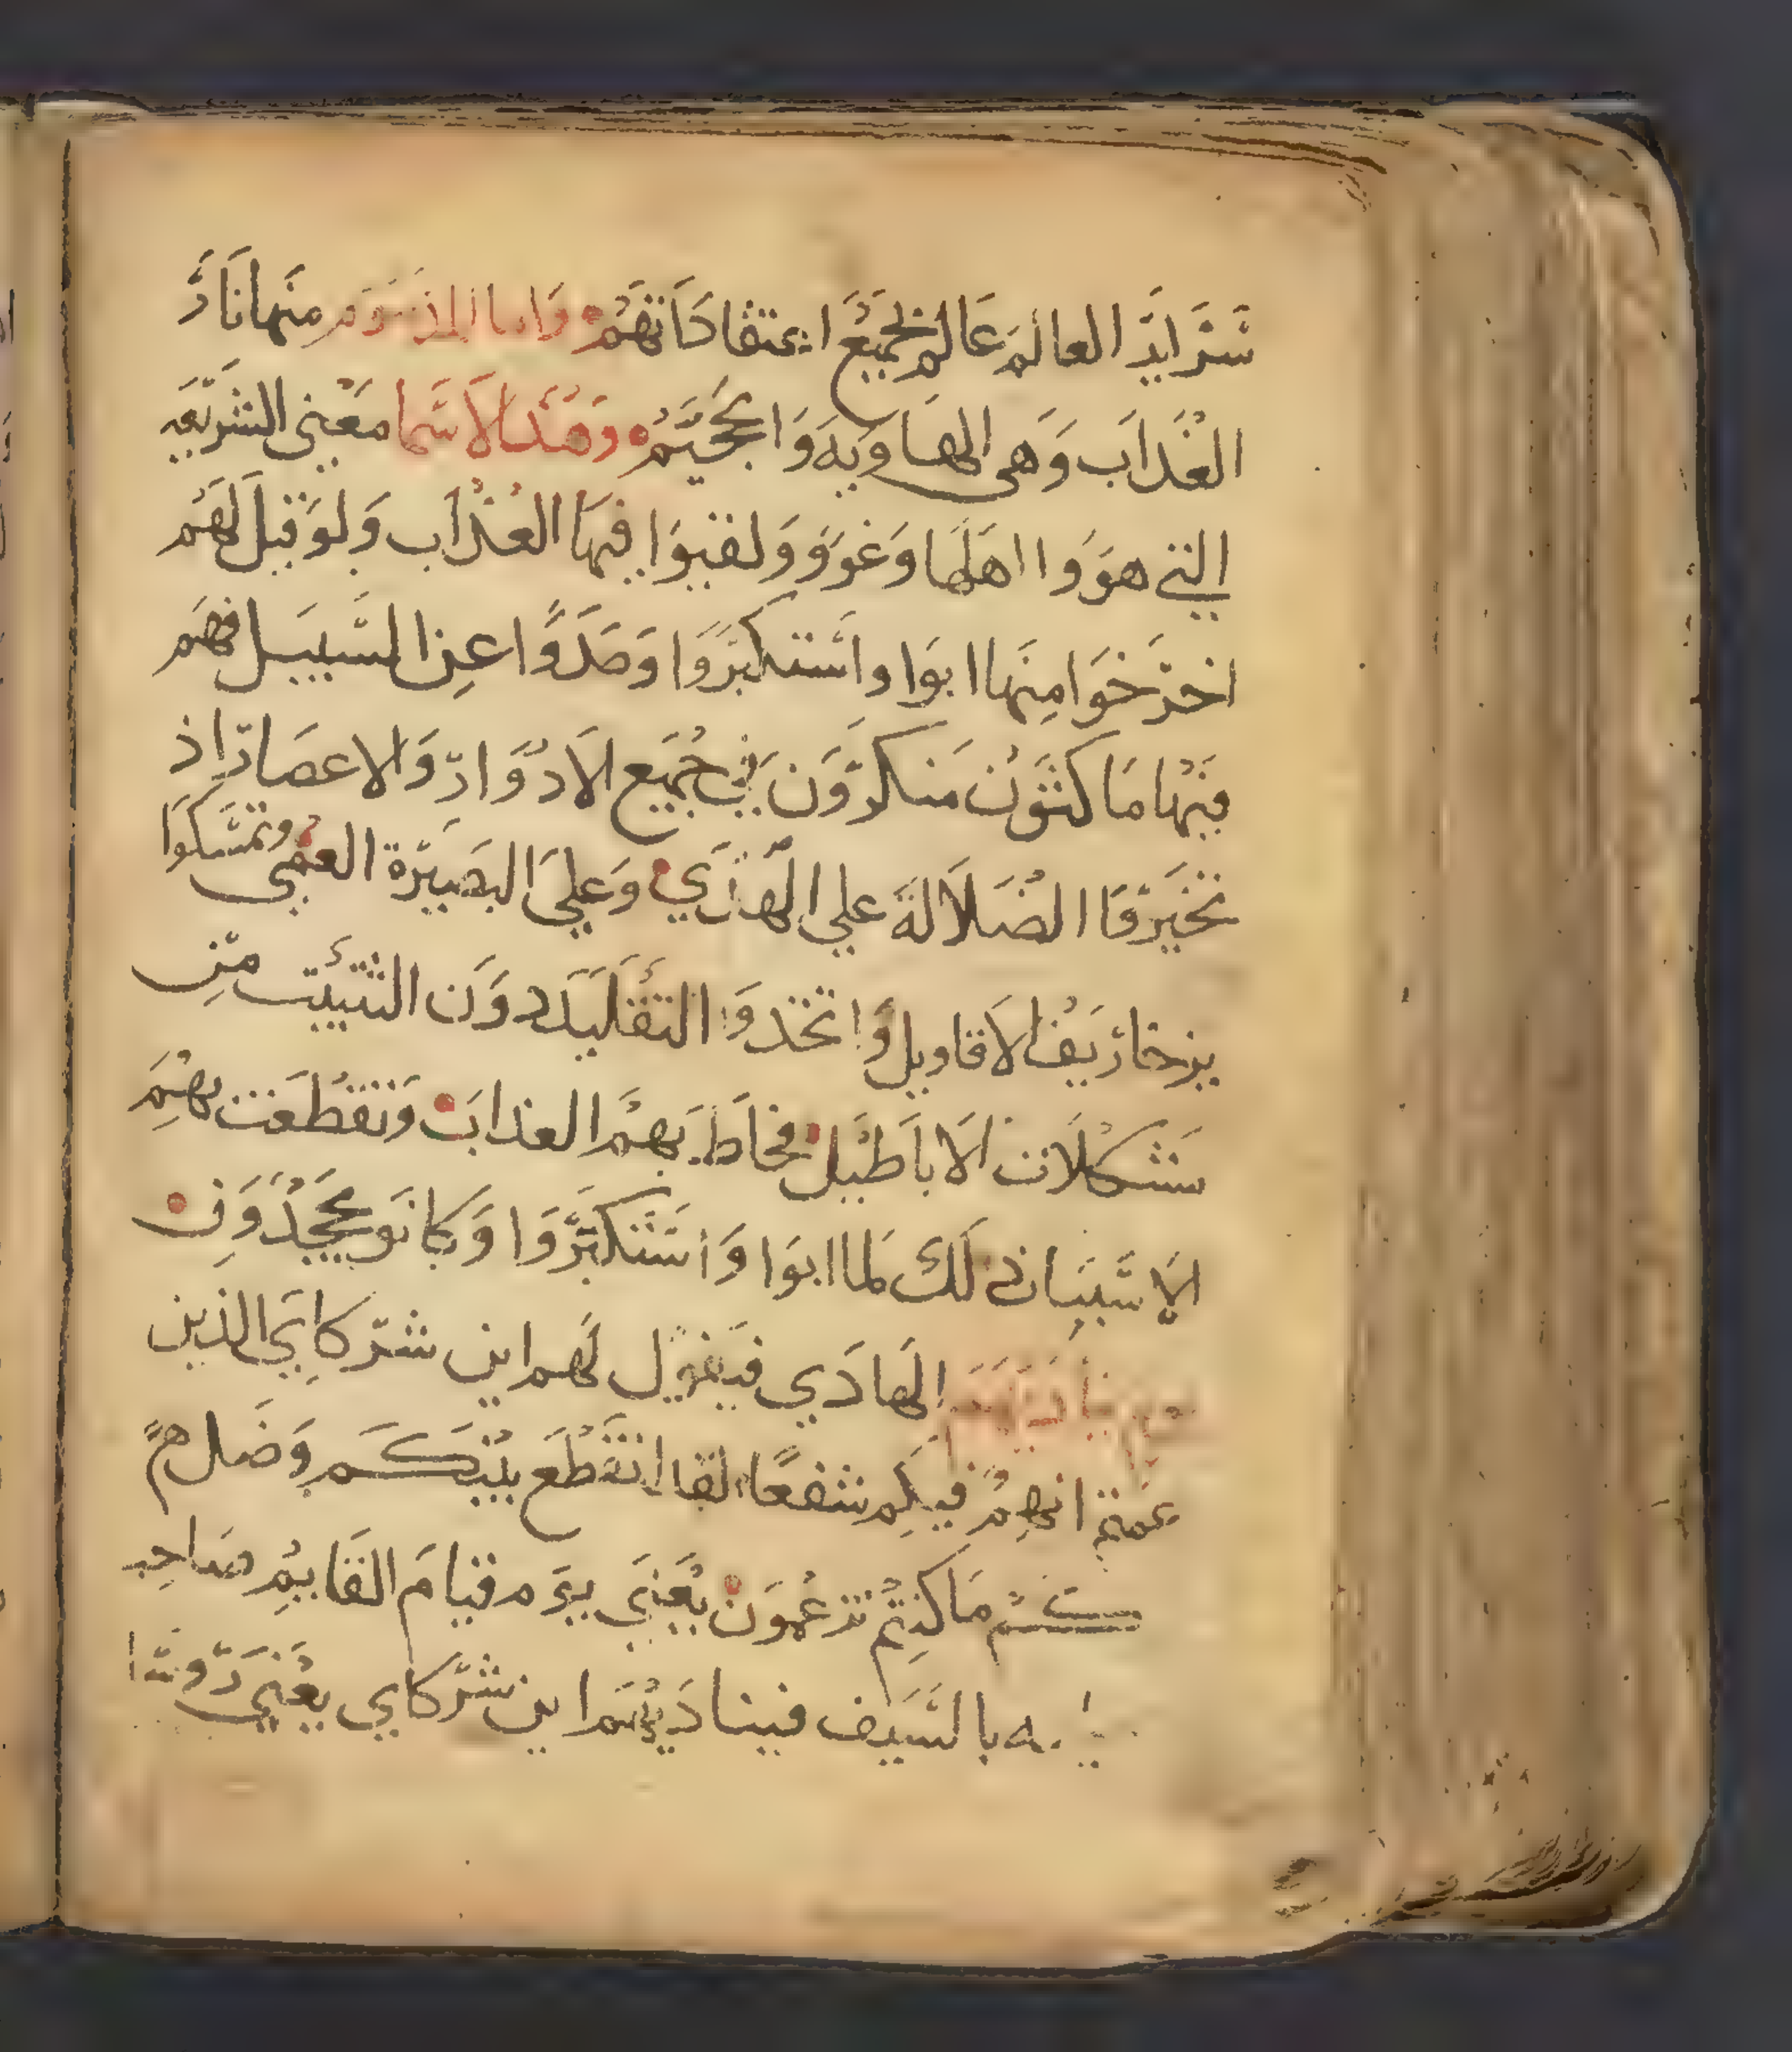 سرايد العالم عالم بجميع اعتقاداتهم واما المذموم منها نار
العذاب وهي الهاويه والجحيم وهذه الاسما معني الشريعه
التي هووا اهلها وغووا ولقيوا فيها العذاب ولو قيل لهم
اخرخوا منها ابوا واستكبروا وصدوا عن السبيل فهم
فيها ماكثون منكرون في جميع الادوار والاعصار اذ
تخيروا الضلالة علي الهدي وعلي البصيرة العمي وتمسكوا
بزخاريف الاقاويل واتخذوا التقليد دون التثبت من
مشكلات الاباطيل فحاط بهم العذاب وتقطعت بهم
الاسباب ذلك لما ابوا واستكبروا وكانو يجحدون
يوم يناديهم الهادي فيقول لهم اين شركاي الذين
زعمتم انهم فيكم شفعا لقد انقطع بينكم وضل
عنكم ما كنتم تزعمون يعني يوم قيام القايم صاحب
بالسيف فيناديهم اين شركاي يعني روسا